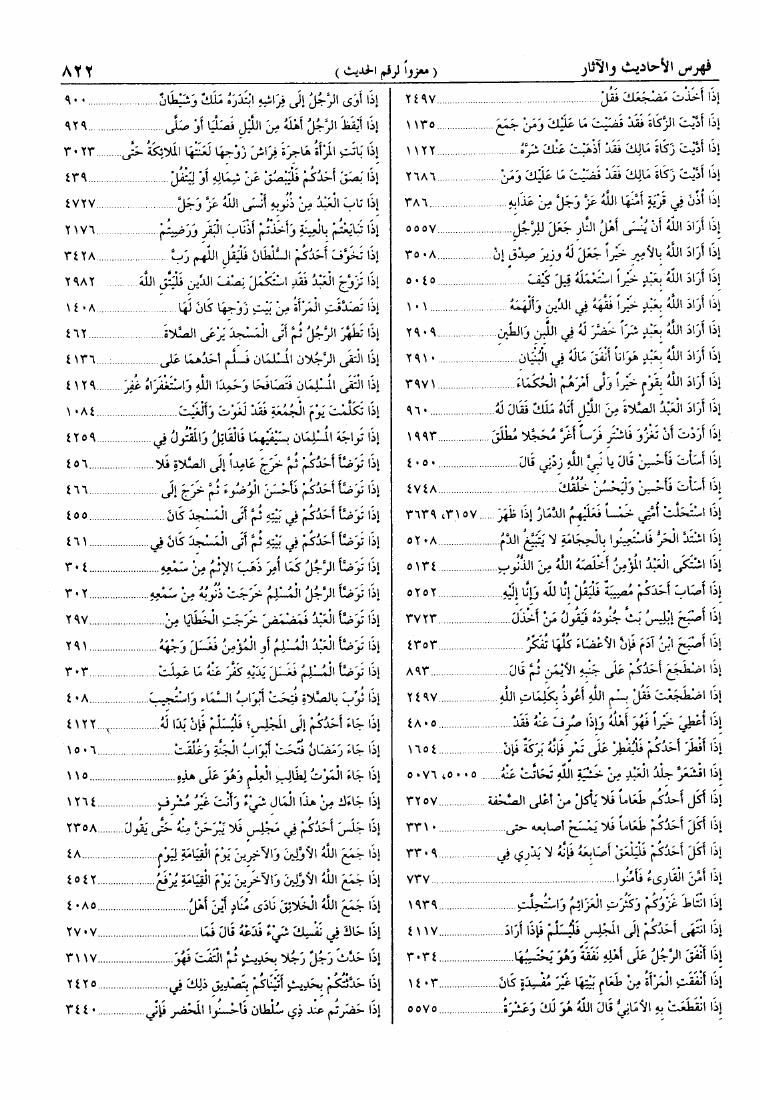 فهرس الأحاديث والآثار ( معزواً لرقم الحديث ) ٨٢٢
إِذَا أَخَذْتَ مَضْجَعَكَ فَقُلْ ... ٢٤٩٧
إِذَا أَدَّيْتَ الزَّكَاةَ فَقَدْ قَضَيْتَ مَا عَلَيْكَ وَمَنْ جَمَعَ ... ١١٣٥
إِذَا أَدَّيْتَ زَكَاةَ مَالِكَ فَقَدْ أَذْهَبْتَ عَنْكَ شَرَّهُ ... ١١٢٢
إِذَا أَدَّيْتَ زَكَاةَ مَالِكَ فَقَدْ قَضَيْتَ مَا عَلَيْكَ وَمَنْ ... ٢٦٨٦
إِذَا أُذِّنَ فِي قَرْيَةٍ أَمَّنَهَا اللَّهُ عَزَّ وَجَلَّ مِنْ عَذَابِهِ ... ٣٨٦
إِذَا أَرَادَ اللَّهُ أَنْ يُنْسَى أَهْلُ النَّارِ جَعَلَ لِلرَّجُلِ ... ٥٥٥٧
إِذَا أَرَادَ اللَّهُ بِالأَمِيرِ خَيْراً جَعَلَ لَهُ وَزِيرَ صِدْقٍ إِنْ ... ٣٥٠٨
إِذَا أَرَادَ اللَّهُ بِعَبْدٍ خَيْراً اسْتَعْمَلَهُ قِيلَ كَيْفَ ... ٥٠٤٥
إِذَا أَرَادَ اللَّهُ بِعَبْدٍ خَيْراً فَقَّهَهُ فِي الدِّينِ وَأَلْهَمَهُ ... ١٠١
إِذَا أَرَادَ اللَّهُ بِعَبْدٍ شَرّاً خَضَّرَ لَهُ فِي اللَّبِنِ وَالطِّينِ ... ٢٩٠٩
إِذَا أَرَادَ اللَّهُ بِعَبْدٍ هَوَاناً أَنْفَقَ مَالَهُ فِي الْبُنْيَانِ ... ٢٩١٠
إِذَا أَرَادَ اللَّهُ بِقَوْمٍ خَيْراً وَلَّى أَمْرَهُمْ الْحُكَمَاءَ ... ٣٩٧١
إِذَا أَرَادَ الْعَبْدُ الصَّلَاةَ مِنَ اللَّيْلِ أَتَاهُ مَلَكٌ فَقَالَ لَهُ ... ٩٦٠
إِذَا أَرَدْتَ أَنْ تَغْزُوَ فَاشْتَرِ فَرَساً أَغَرَّ مُحَجَّلاً مُطْلَقَ ... ١٩٩٣
إِذَا أَسَأْتَ فَأَحْسِنْ قَالَ يَا نَبِيَّ اللَّهِ زِدْنِي قَالَ ... ٤٠٥٠
إِذَا أَسَأْتَ فَأَحْسِنْ وَلْيَحْسُنْ خُلُقُكَ ... ٤٧٤٨
إِذَا اسْتَحَلَّتْ أُمَّتِي خَمْساً فَعَلَيْهِمُ الدَّمَارُ إِذَا ظَهَرَ ... ٣١٥٧، ٣٦٣٩
إِذَا اشْتَدَّ الْحَرُّ فَاسْتَعِينُوا بِالْحِجَامَةِ لَا يَتَبَيَّغُ الدَّمُ ... ٥٢٠٨
إِذَا اشْتَكَى الْعَبْدُ الْمُؤْمِنُ أَخْلَصَهُ اللَّهُ مِنَ الذُّنُوبِ ... ٥١٣٤
إِذَا أَصَابَ أَحَدَكُمْ مُصِيبَةٌ فَلْيَقُلْ إِنَّا لِلَّهِ وَإِنَّا إِلَيْهِ ... ٥٢٥٢
إِذَا أَصْبَحَ إِبْلِيسُ بَثَّ جُنُودَهُ فَيَقُولُ مَنْ أَخْذَلَ ... ٣٧٢٣
إِذَا أَصْبَحَ ابْنُ آدَمَ فَإِنَّ الأَعْضَاءَ كُلَّهَا تُفَكِّرُ ... ٤٣٥٣
إِذَا اضْطَجَعَ أَحَدُكُمْ عَلَى جَنْبِهِ الأَيْمَنِ ثُمَّ قَالَ ... ٨٩٣
إِذَا اضْطَجَعْتَ فَقُلْ بِسْمِ اللَّهِ أَعُوذُ بِكَلِمَاتِ اللَّهِ ... ٢٤٩٧
إِذَا أُعْطِيَ خَيْراً فَهُوَ أَهْلُهُ وَإِذَا صُرِفَ عَنْهُ فَقَدْ ... ٤٨٠٥
إِذَا أَفْطَرَ أَحَدُكُمْ فَلْيُفْطِرْ عَلَى تَمْرٍ فَإِنَّهُ بَرَكَةٌ فَإِنْ ... ١٦٥٤
إِذَا اقْشَعَرَّ جِلْدُ الْعَبْدِ مِنْ خَشْيَةِ اللَّهِ تَحَاتَّتْ عَنْهُ ... ٥٠٠٥، ٥٠٧٦
إِذَا أَكَلَ أَحَدُكُمْ طَعَاماً فَلَا يَأْكُلْ مِنْ أَعْلَى الصَّحْفَةِ ... ٣٢٥٧
إِذَا أَكَلَ أَحَدُكُمْ طَعَاماً فَلَا يَمْسَحْ أَصَابِعَهُ حَتَّى ... ٣٣١٠
إِذَا أَكَلَ أَحَدُكُمْ فَلْيَلْعَقْ أَصَابِعَهُ فَإِنَّهُ لَا يَدْرِي فِي ... ٣٣٠٩
إِذَا أَمَّنَ الْقَارِىءُ فَأَمِّنُوا ... ٧٣٧
إِذَا انْتَاطَ غَزْوُكُمْ وَكَثُرَتِ الْعَزَائِمُ وَاسْتُحِلَّتِ ... ١٩٣٩
إِذَا انْتَهَى أَحَدُكُمْ إِلَى الْمَجْلِسِ فَلْيُسَلِّمْ فَإِذَا أَرَادَ ... ٤١١٧
إِذَا أَنْفَقَ الرَّجُلُ عَلَى أَهْلِهِ نَفَقَةً وَهُوَ يَحْتَسِبُهَا ... ٣٠٣٤
إِذَا أَنْفَقَتِ الْمَرْأَةُ مِنْ طَعَامِ بَيْتِهَا غَيْرَ مُفْسِدَةٍ كَانَ ... ١٤٠٣
إِذَا انْقَطَعَتْ بِهِ الأَمَانِيُّ قَالَ اللَّهُ هُوَ لَكَ وَعَشْرَةُ ... ٥٥٧٥
إِذَا أَوَى الرَّجُلُ إِلَى فِرَاشِهِ ابْتَدَرَهُ مَلَكٌ وَشَيْطَانٌ ... ٩٠٠
إِذَا أَيْقَظَ الرَّجُلُ أَهْلَهُ مِنَ اللَّيْلِ فَصَلَّيَا أَوْ صَلَّى ... ٩٢٩
إِذَا بَاتَتِ الْمَرْأَةُ هَاجِرَةً فِرَاشَ زَوْجِهَا لَعَنَتْهَا الْمَلَائِكَةُ حَتَّى ... ٣٠٢٣
إِذَا بَصَقَ أَحَدُكُمْ فَلْيَبْصُقْ عَنْ شِمَالِهِ أَوْ لِيَتْفُلْ ... ٤٣٩
إِذَا تَابَ الْعَبْدُ مِنْ ذُنُوبِهِ أَنْسَى اللَّهُ عَزَّ وَجَلَّ ... ٤٧٢٧
إِذَا تَبَايَعْتُمْ بِالْعِينَةِ وَأَخَذْتُمْ أَذْنَابَ الْبَقَرِ وَرَضِيتُمْ ... ٢١٧٦
إِذَا تَخَوَّفَ أَحَدُكُمُ السُّلْطَانَ فَلْيَقُلِ اللَّهُمَّ رَبَّ ... ٣٤٢٨
إِذَا تَزَوَّجَ الْعَبْدُ فَقَدِ اسْتَكْمَلَ نِصْفَ الدِّينِ فَلْيَتَّقِ اللَّهَ ... ٢٩٨٢
إِذَا تَصَدَّقَتِ الْمَرْأَةُ مِنْ بَيْتِ زَوْجِهَا كَانَ لَهَا ... ١٤٠٨
إِذَا تَطَهَّرَ الرَّجُلُ ثُمَّ أَتَى الْمَسْجِدَ يَرْعَى الصَّلَاةَ ... ٤٦٢
إِذَا الْتَقَى الرَّجُلَانِ الْمُسْلِمَانِ فَسَلَّمَ أَحَدُهُمَا عَلَى ... ٤١٣٦
إِذَا الْتَقَى الْمُسْلِمَانِ فَتَصَافَحَا وَحَمِدَا اللَّهَ وَاسْتَغْفَرَاهُ غُفِرَ ... ٤١٢٩
إِذَا تَكَلَّمْتَ يَوْمَ الْجُمُعَةِ فَقَدْ لَغَوْتَ وَأَلْغَيْتَ ... ١٠٨٤
إِذَا تَوَاجَهَ الْمُسْلِمَانِ بِسَيْفَيْهِمَا فَالْقَاتِلُ وَالْمَقْتُولُ فِي ... ٤٢٥٩
إِذَا تَوَضَّأَ أَحَدُكُمْ ثُمَّ خَرَجَ عَامِداً إِلَى الصَّلَاةِ فَلَا ... ٤٥٦
إِذَا تَوَضَّأَ أَحَدُكُمْ فَأَحْسَنَ الْوُضُوءَ ثُمَّ خَرَجَ إِلَى ... ٤٦٦
إِذَا تَوَضَّأَ أَحَدُكُمْ فِي بَيْتِهِ ثُمَّ أَتَى الْمَسْجِدَ كَانَ ... ٤٥٥
إِذَا تَوَضَّأَ أَحَدُكُمْ فِي بَيْتِهِ ثُمَّ أَتَى الْمَسْجِدَ كَانَ فِي ... ٤٦١
إِذَا تَوَضَّأَ الرَّجُلُ كَمَا أُمِرَ ذَهَبَ الإِثْمُ مِنْ سَمْعِهِ ... ٣٠٤
إِذَا تَوَضَّأَ الرَّجُلُ الْمُسْلِمُ خَرَجَتْ ذُنُوبُهُ مِنْ سَمْعِهِ ... ٣٠٢
إِذَا تَوَضَّأَ الْعَبْدُ فَمَضْمَضَ خَرَجَتِ الْخَطَايَا مِنْ ... ٢٩٧
إِذَا تَوَضَّأَ الْعَبْدُ الْمُسْلِمُ أَوِ الْمُؤْمِنُ فَغَسَلَ وَجْهَهُ ... ٢٩١
إِذَا تَوَضَّأَ الْمُسْلِمُ فَغَسَلَ يَدَيْهِ كَفَّرَ عَنْهُ مَا عَمِلَتْ ... ٣٠٣
إِذَا ثُوِّبَ بِالصَّلَاةِ فُتِحَتْ أَبْوَابُ السَّمَاءِ وَاسْتُجِيبَ ... ٤٠٨
إِذَا جَاءَ أَحَدُكُمْ إِلَى الْمَجْلِسِ؛ فَلْيُسَلِّمْ فَإِنْ بَدَا لَهُ ... ٤١٢٢
إِذَا جَاءَ رَمَضَانُ فُتِّحَتْ أَبْوَابُ الْجَنَّةِ وَغُلِّقَتْ ... ١٥٠٦
إِذَا جَاءَ الْمَوْتُ لِطَالِبِ الْعِلْمِ وَهُوَ عَلَى هَذِهِ ... ١١٥
إِذَا جَاءَكَ مِنْ هَذَا الْمَالِ شَيْءٌ وَأَنْتَ غَيْرُ مُشْرِفٍ ... ١٢٦٤
إِذَا جَلَسَ أَحَدُكُمْ فِي مَجْلِسٍ فَلَا يَبْرَحَنَّ مِنْهُ حَتَّى يَقُولَ ... ٢٣٥٨
إِذَا جَمَعَ اللَّهُ الأَوَّلِينَ وَالآخِرِينَ يَوْمَ الْقِيَامَةِ لِيَوْمٍ ... ٤٨
إِذَا جَمَعَ اللَّهُ الأَوَّلِينَ وَالآخِرِينَ يَوْمَ الْقِيَامَةِ يُرْفَعُ ... ٤٥٤٢
إِذَا جَمَعَ اللَّهُ الْخَلَائِقَ نَادَى مُنَادٍ أَيْنَ أَهْلُ ... ٤٠٨٥
إِذَا حَاكَ فِي نَفْسِكَ شَيْءٌ فَدَعْهُ قَالَ فَمَا ... ٢٧٠٧
إِذَا حَدَّثَ رَجُلٌ رَجُلاً بِحَدِيثٍ ثُمَّ الْتَفَتَ فَهُوَ ... ٣١١٧
إِذَا حَدَّثْتُكُمْ بِحَدِيثٍ أَتَيْنَاكُمْ بِتَصْدِيقِ ذَلِكَ فِي ... ٢٤٢٥
إِذَا حَضَرْتُمْ عِنْدَ ذِي سُلْطَانٍ فَأَحْسِنُوا الْمَحْضَرَ فَإِنِّي ... ٣٤٤٠